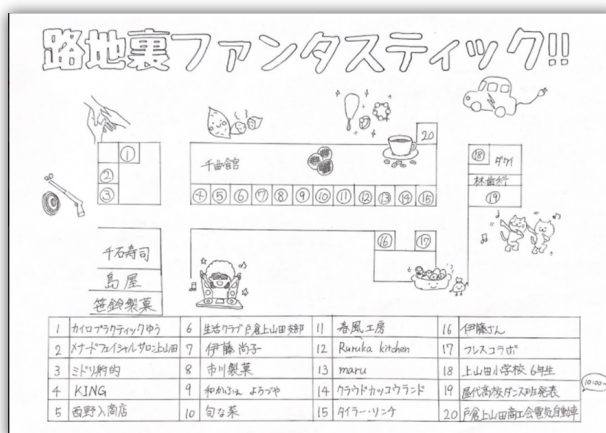 路地裏ファンタスティック!!
①
②
③
千曲館
④ ⑤ ⑥ ⑦ ⑧ ⑨ ⑩ ⑪ ⑫ ⑬ ⑭ ⑮
20
⑱
林歯科
⑲
千石寿司
島屋
笹鈴製菓
⑯ ⑰
1 カイロプラクティックゆう 6 生活クラブ戸倉上山田支部 11 春風工房 16 伊藤さん
2 メナードフェイシャルサロン上山田 7 伊藤尚子 12 Ruruka kitchen 17 フレスコラボ
3 ミドリ 8 市川製菓 13 maru 18 上山田小学校 6年生
4 KING 9 和かふぇ よろづや 14 クラウドカッコウランド 19 屋代高校ダンス班発表
5 西野入商店 10 旬な菜 15 タイラー・リンチ 20 戸倉上山田商工会電気自動車